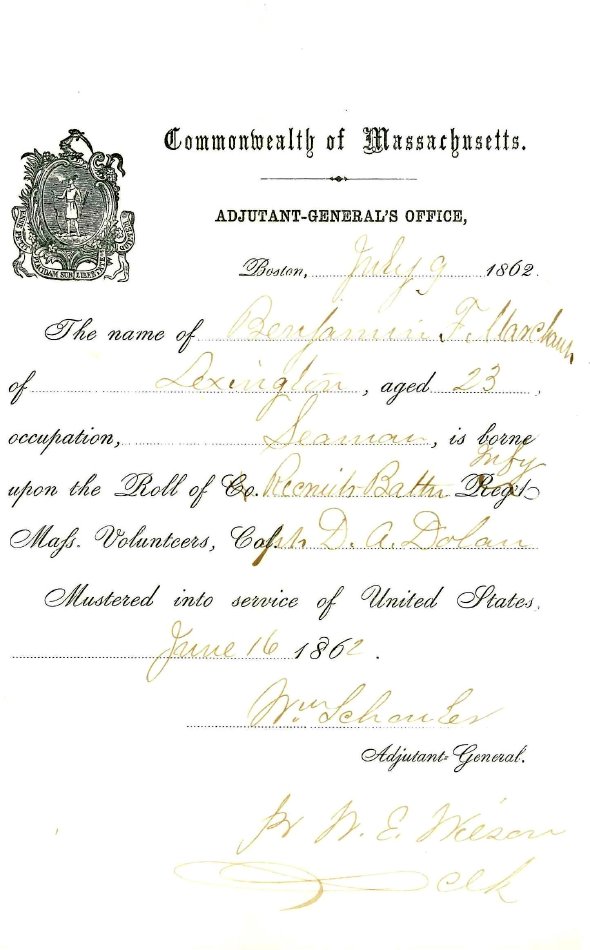 Commonwealth of Massachusetts.
ADJUTANT-GENERAL'S OFFICE,
Boston, July 9 1862.
The name of Benjamin F. Marchant,
of Lexington, aged 23,
occupation, Seaman, is borne
Infy
upon the Roll of Co. Recruits Battn Regt
Mass. Volunteers, Capt. D. A. Dolan
Mustered into service of United States,
June 16 1862.
Wm Schouler
Adjutant-General.
pr W. E. Wilson
Clk